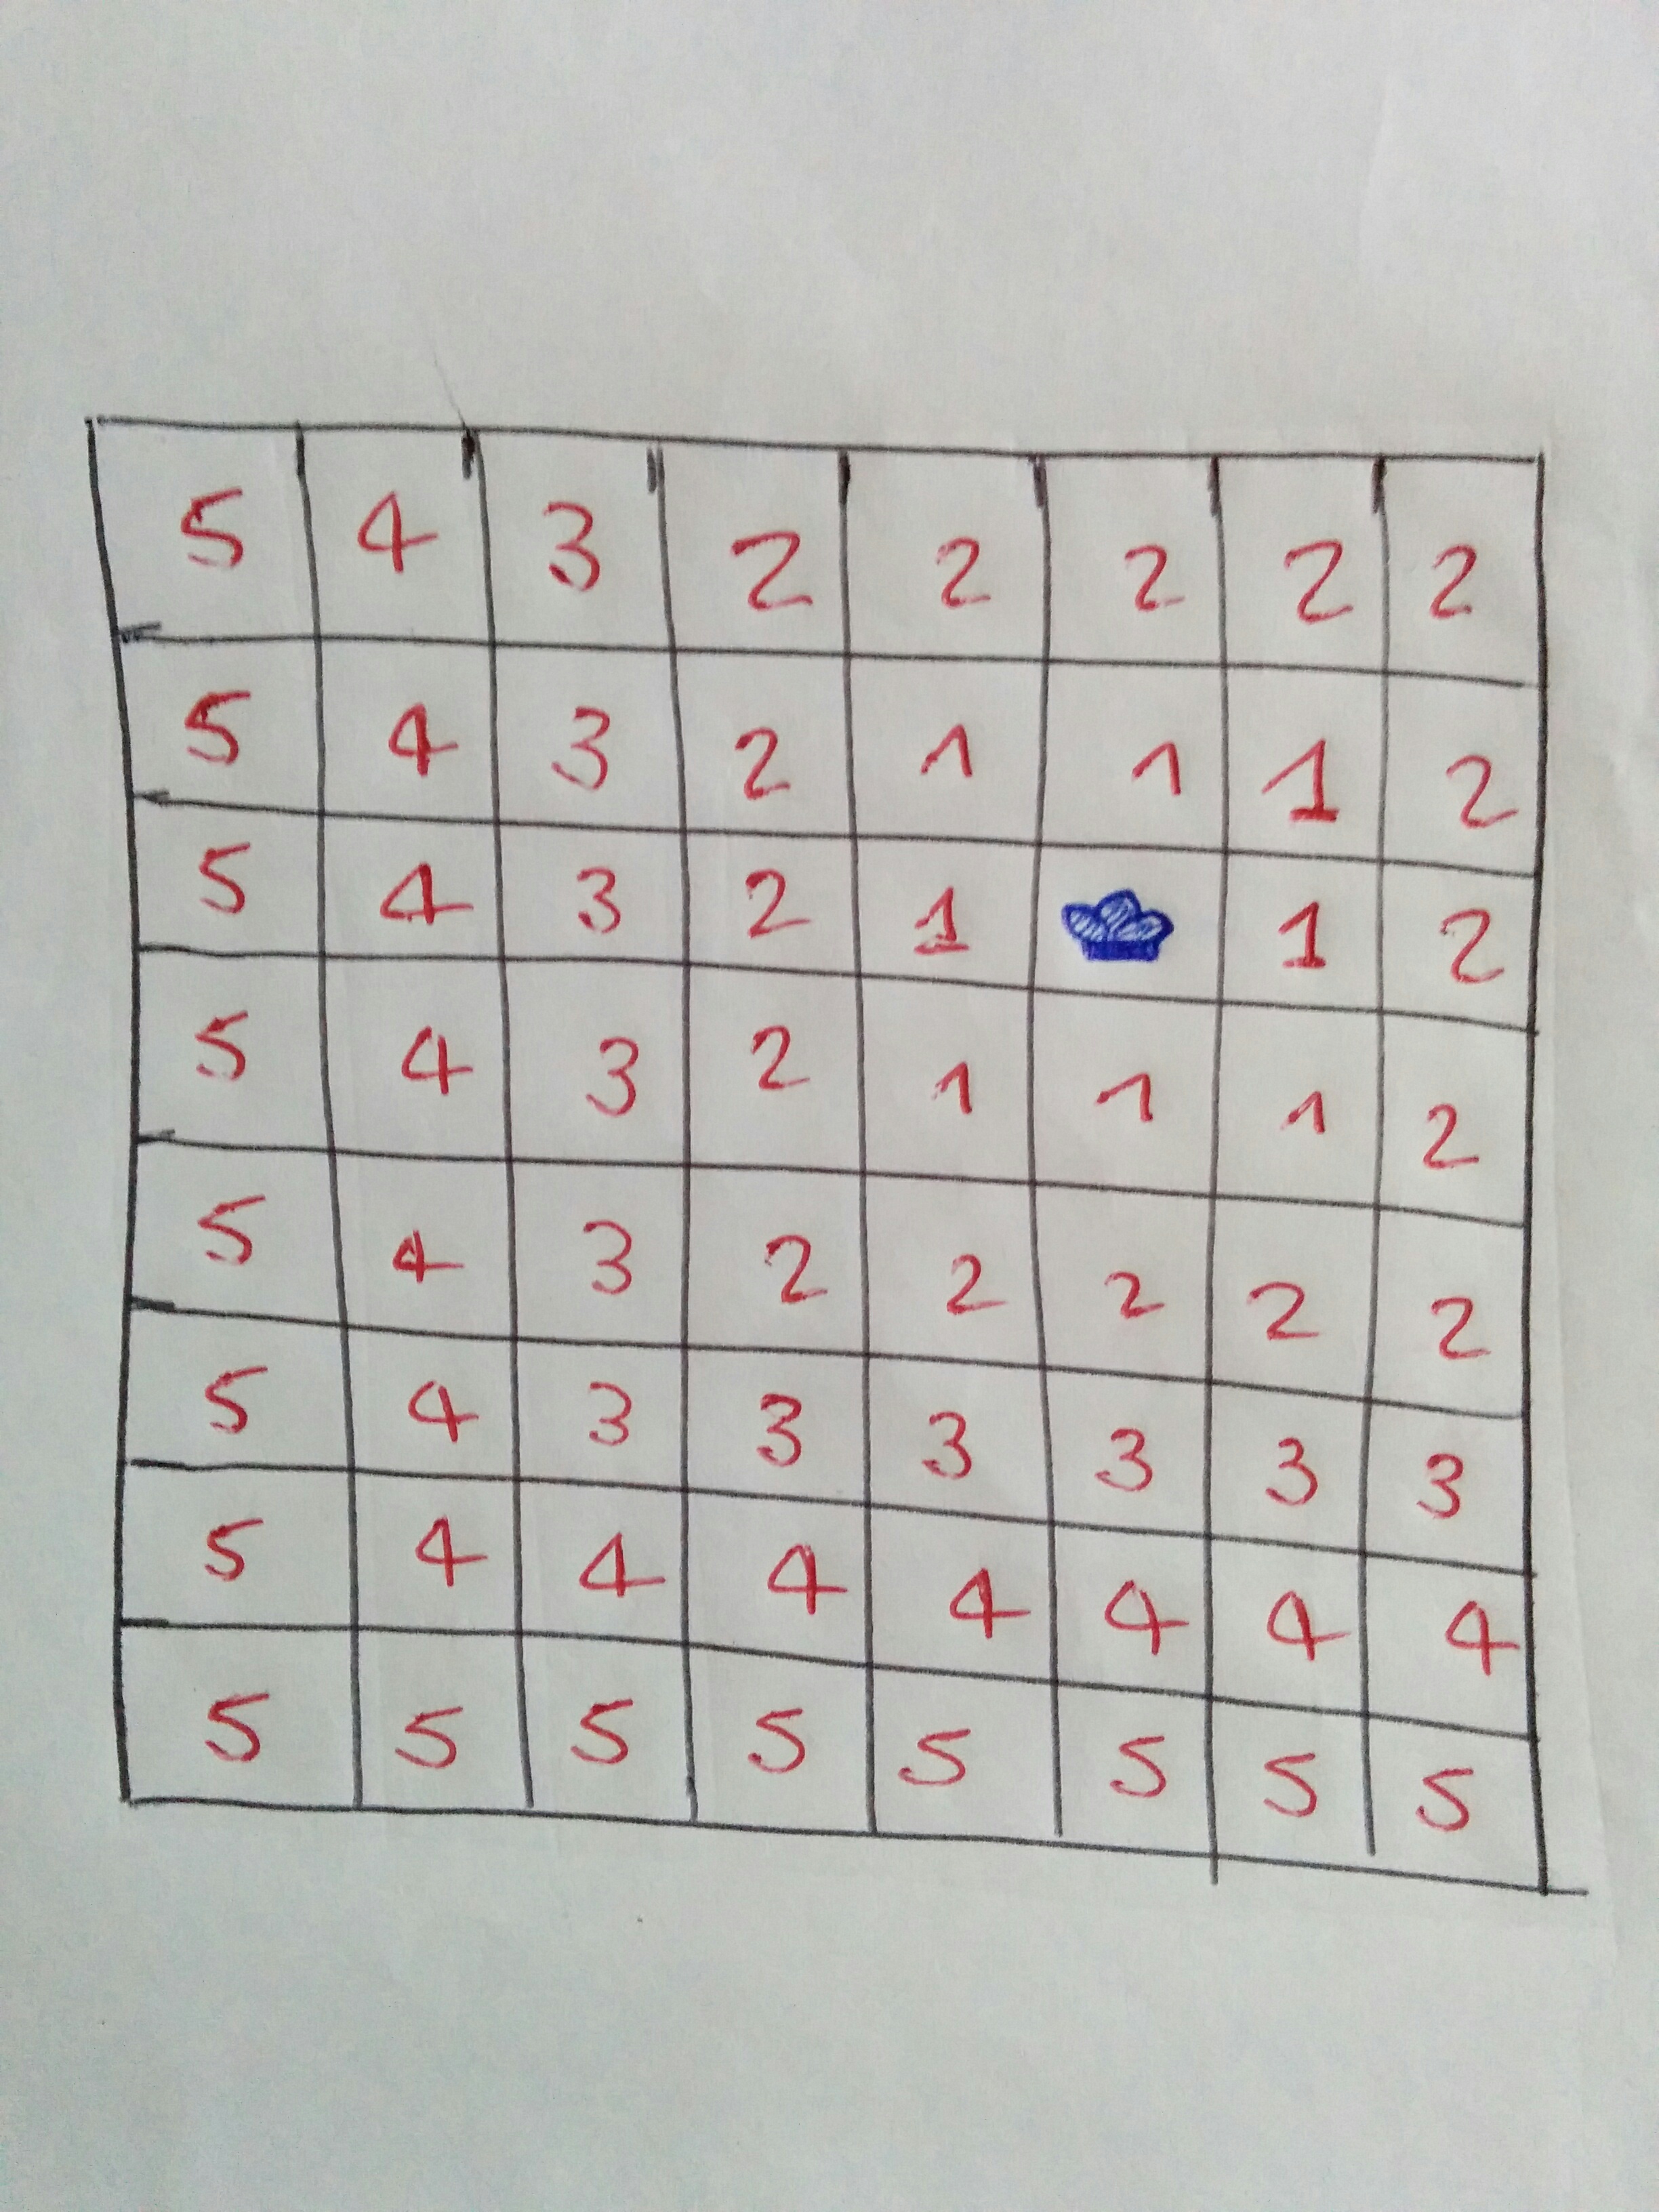 5 4 3 2 2 2 2 2
5 4 3 2 1 1 1 2
5 4 3 2 1 1 2
5 4 3 2 1 1 1 2
5 4 3 2 2 2 2 2
5 4 3 3 3 3 3 3
5 4 4 4 4 4 4 4
5 5 5 5 5 5 5 5